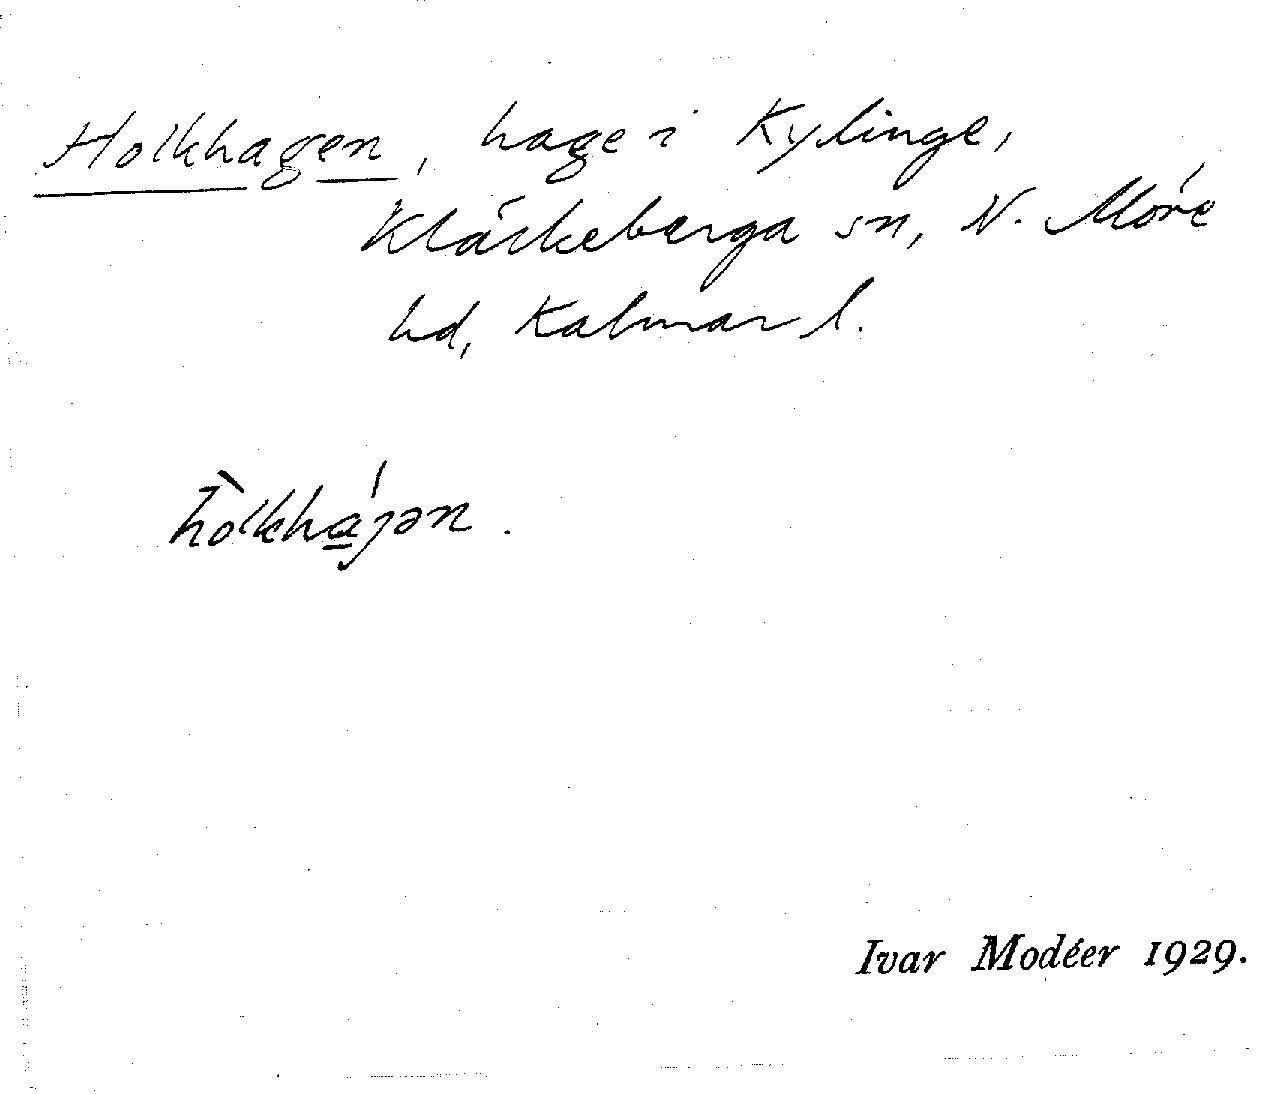 Holkhagen, hage i Kylinge,
Kläckeberga sn, N. Möre
hd, Kalmar l.
hòlkhájən.
Ivar Modéer 1929.